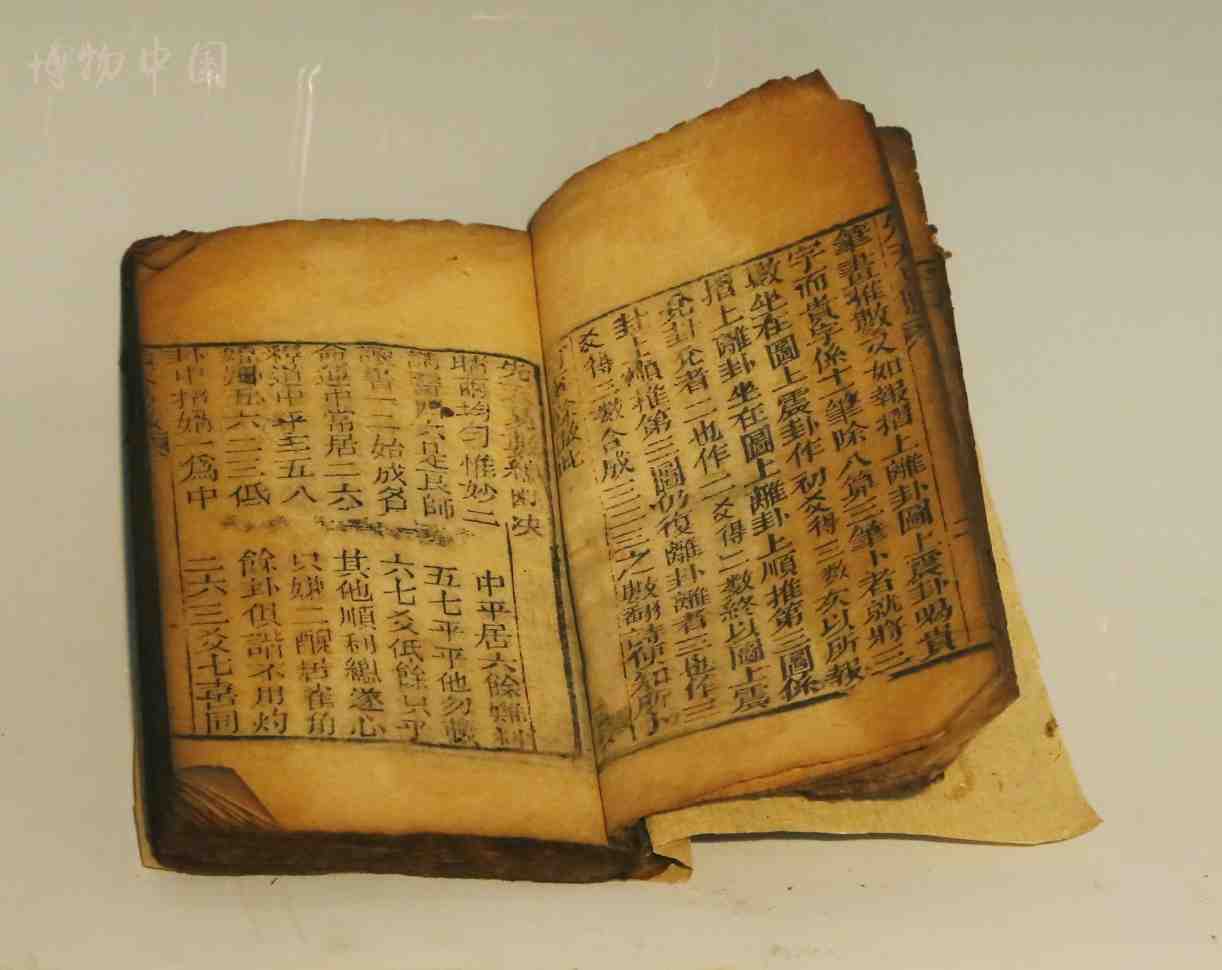 博物中國
筆畫推數又如報摺上離卦圖上震卦喝貴
字而貴字係十一筆除八算三筆卜者就將三
數坐在圖上震卦作初爻得三數次以所報
摺上離卦坐在圖上離卦上順推第三圖係
兌卦兌者二也作二爻得二數終以圖上震
卦上順推第三圖仍復離卦離者三也作三
爻得三數合成三二三之數翻詩便知所卜
倣此
先天
訣
晴雨均勻惟妙二 中平居六餘嫌
詩書四六是良師 五七平平他勿
一二始成名 六七爻低餘只平
命運平常居二六 其他順利總遂心
道中平至五八 只嫌二醜居雀角
婚姻五六二三低 餘卦俱諧不用灼
卦中指 一爲中 二六三爻七吉同